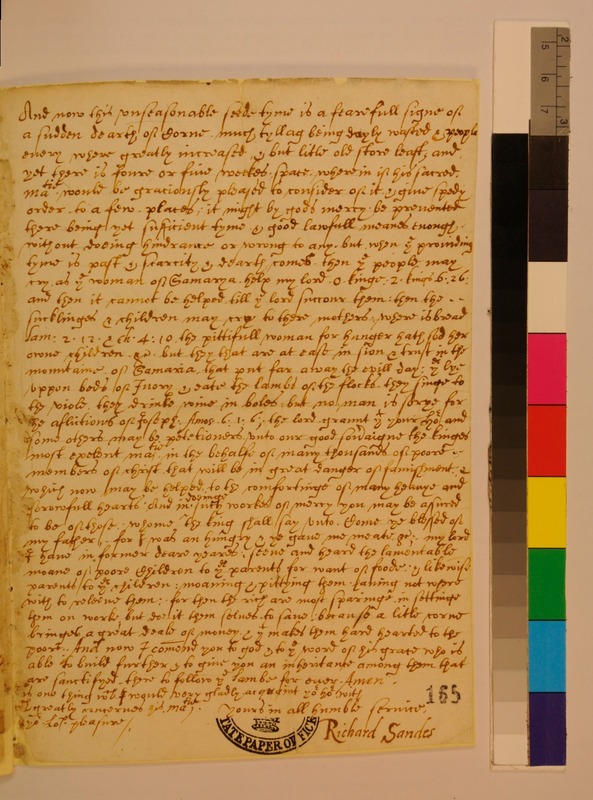 And now this unseasonable seede tyme is a fearefull signe of
a sudden dearth of Corne. much tyllag being dayly wasted & people
every where greatly increased, & but litle old store leaft, and
yet there is foure or five weekes space. where in if his sacred
matie. would be graciously pleased to consider of it & give spedy
order. to a few. places; it might by gods mercy. be prevented
there being yet sufficient tyme & good lawfull meanes enough,
without doeing hindrance or wrong to any. but when ye providing
tyme is past & scarcity & dearth comes then ye people may
cry. as ye woman of Samarya. help my lord o kinge. 2. kings. 6. 26:
and then it cannot be helped till ye lord succour them: then the
sucklinges & children may cry to there mothers, where is bread
lam: 2. 12. & ch: 4. 10 the pittifull woman for hunger hath sod her
owne children. &c. but they that are at ease in sion & trust in the
mountaine of Samaria, that put far away the evill day: & lye
uppon beds of Ivory & eate the lambs of the flocke. they singe to
the viole, they drinke wine in boles: but no man is sorye for
the aflictions of Joseph. Amos. 6. 1. 6; the lord graunt yt your Hor and
some others may be petetioners unto our good soveraigne the kinges
most exelent matie. in the behalfe of many thousands of poore
members of christ that will be in great danger of famishment, &
which now may be helped, to the comfortinge of many heavye and
sorowfull hearts. And in doeinge such workes of mercy you may be asured
to be of those, whome the king shall say unto. Come ye blessed of
my father, for I was an hungry & ye gave me meate &c. my lord
I have in former deare yeares, seene and heard the lamentable
moane of poore Children to yr parents for want of foode: & likewise
parents to yr children: moaning & pittying them. having not where
with to releeve them: for then the rich are most sparinge in settinge
them on worke but doe it them selves, to save: because a litle corne
bringes a great deale of money, & yt makes them hard hearted to the
poore. And now I comend you to god & to ye word of his grace who is
able to build further & to give you an inheritance among them that
are sanctifyed. there to follow ye lambe for ever. Amen.
is one thing wch I would very gladly acquaint yor hor with
greatly concernes his matie.
yor Lops. pleasure /
yours in all humble service
Richard Sandes
165
STATE PAPER OFFICE
5
6
7
2